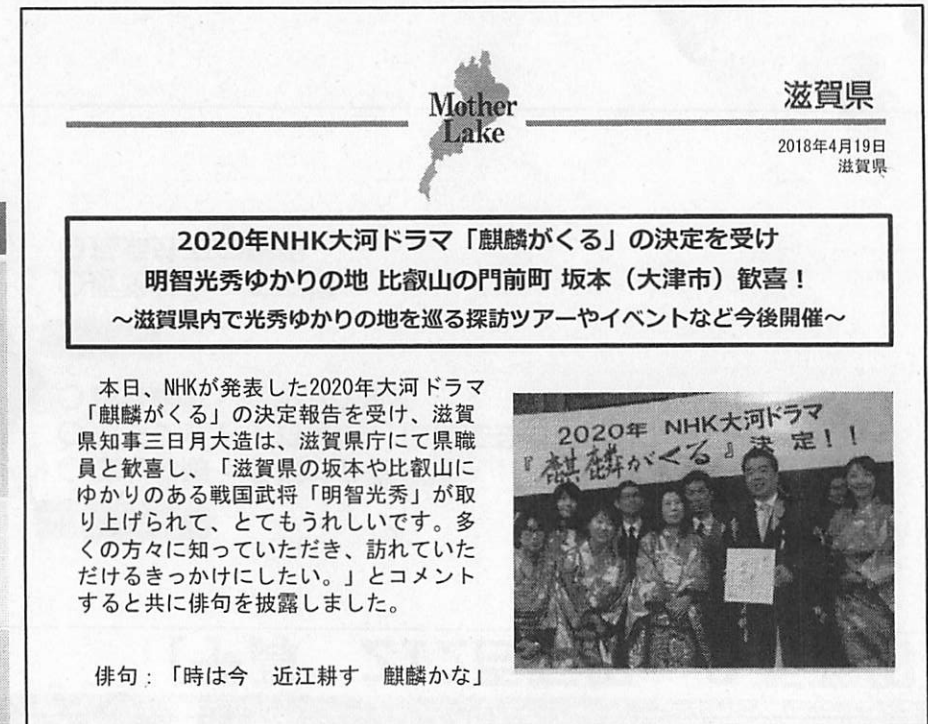 Mother
Lake
滋賀県
2018年4月19日
滋賀県
2020年NHK大河ドラマ「麒麟がくる」の決定を受け
明智光秀ゆかりの地 比叡山の門前町 坂本（大津市）歓喜！
～滋賀県内で光秀ゆかりの地を巡る探訪ツアーやイベントなど今後開催～
本日、NHKが発表した2020年大河ドラマ
「麒麟がくる」の決定報告を受け、滋賀
県知事三日月大造は、滋賀県庁にて県職
員と歓喜し、「滋賀県の坂本や比叡山に
ゆかりのある戦国武将「明智光秀」が取
り上げられて、とてもうれしいです。多
くの方々に知っていただき、訪れていた
だけるきっかけにしたい。」とコメント
すると共に俳句を披露しました。
俳句：「時は今　近江耕す　麒麟かな」
2020年 NHK大河ドラマ
『麒麟がくる』決定！！